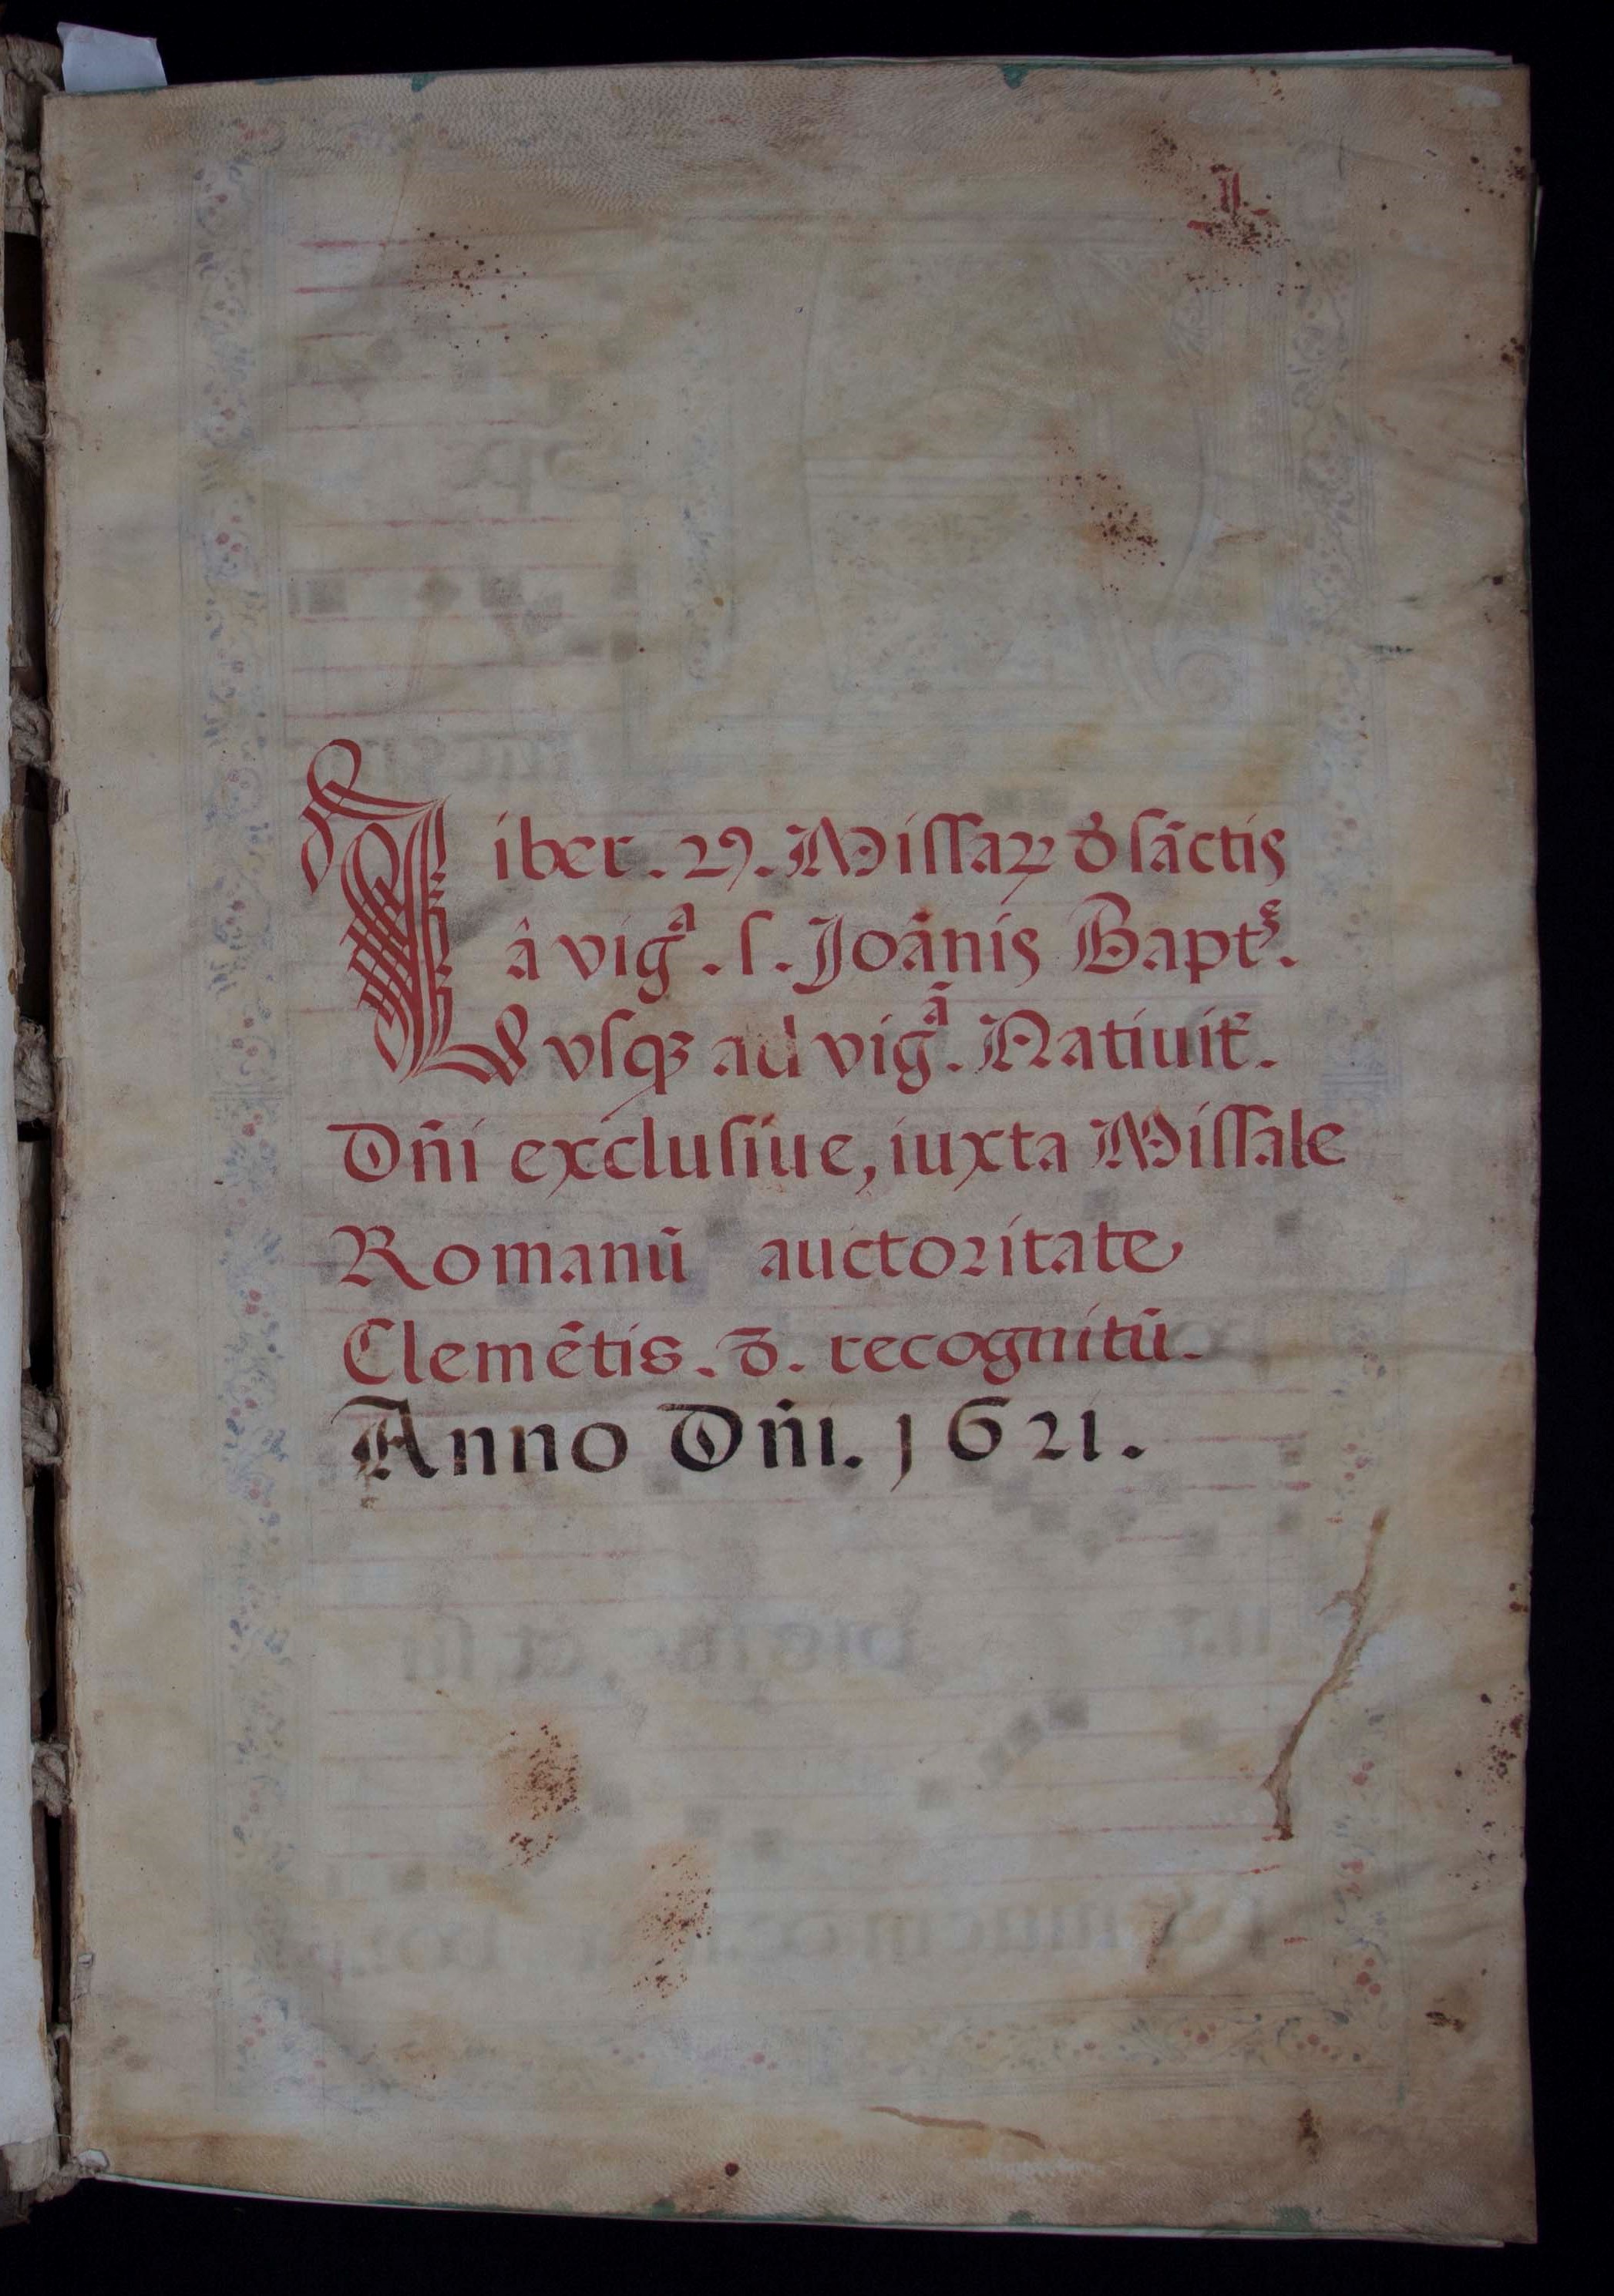 Liber. 29. Missaꝝ ꝺ̄ sāctis
â vig.ᵃ s. Joānis Bapt.ᵉ
vsqꝫ ad vig.ᵃ Natiuit̄.
Dn̄i exclusiue, iuxta Missale
Romanū auctoritate
Clemētis. 8. recognitū.
Anno Dn̄i. 1621.